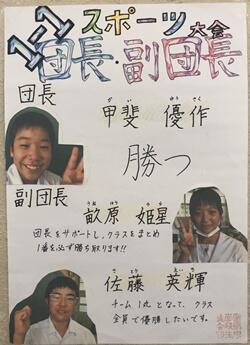 1-1 スポーツ大会
団長・副団長
団長
かい ゆうさく
甲斐 優作
勝つ
副団長
畝原 姫星
団長をサポートし、クラスをまとめ
1番を必ず勝ち取ります!!
さとう
佐藤 英輝
チーム1丸となって、クラス
全員で優勝したいです。